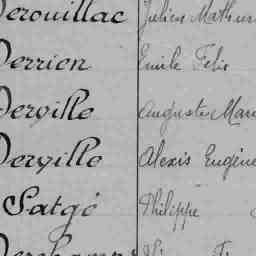 Derouillac Julien Mathur
Derrien Emile Felix
Derville Auguste Mar
Derville Alexis Eugène
Satgé Philippe